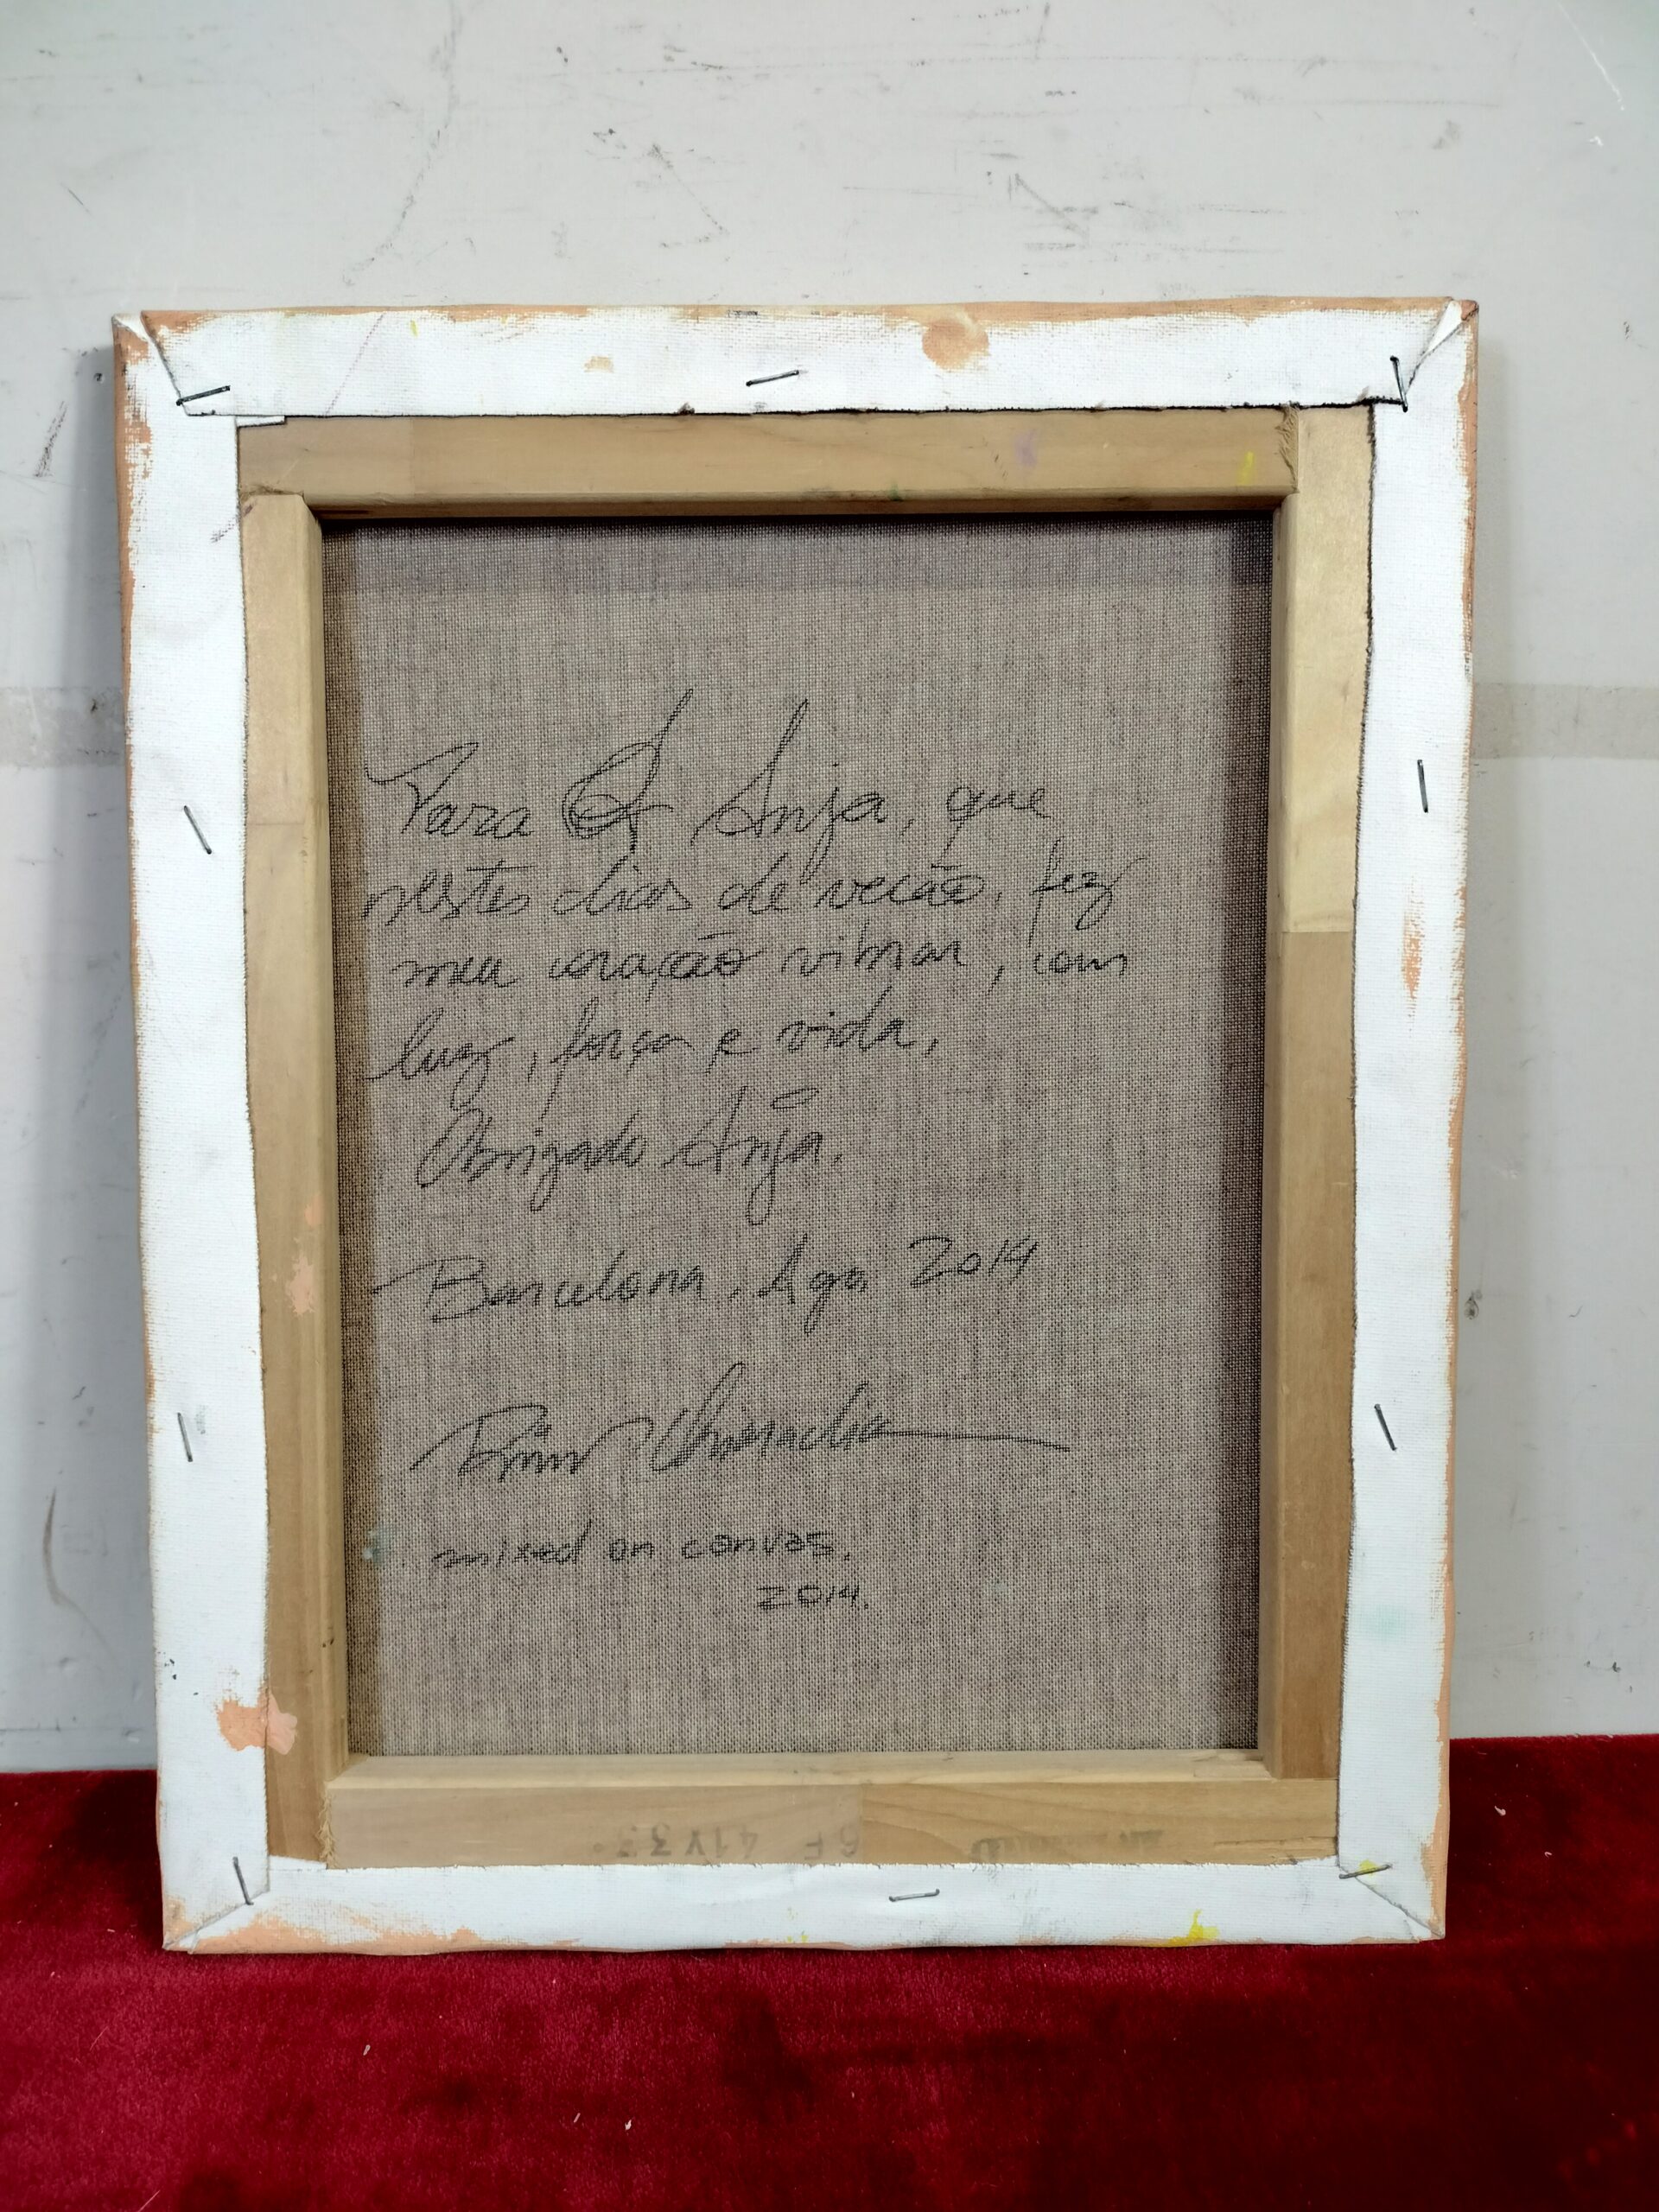 Para Anja, que
nestes dias de verão, fez
meu coração vibrar, com
luz, força e vida,
Obrigado Anja.
Barcelona, Ago 2014
mixed on canvas.
2014.